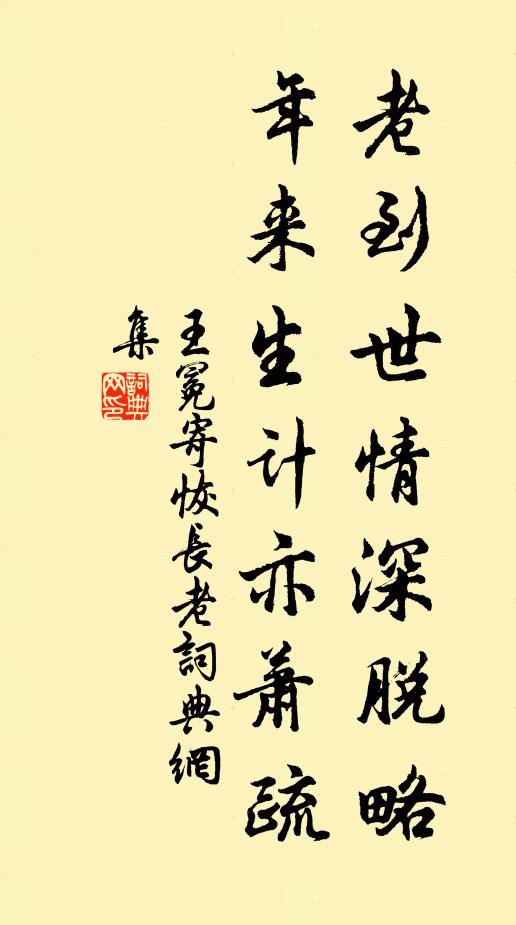 老到世情深脫略
年来生计亦萧疏
王冕寄恢長老詞典網
集
詞典
网印